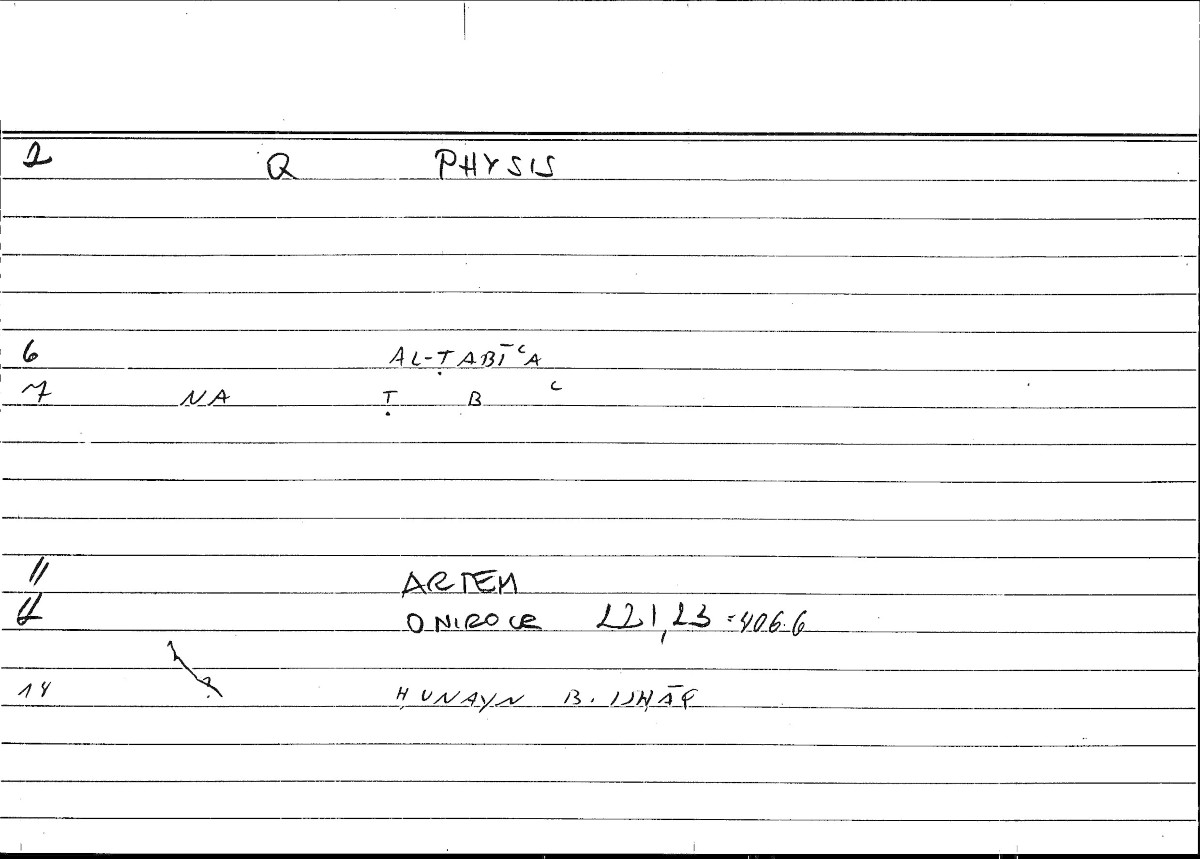 2 Q PHYSIS
6 AL-ṬABĪʿA
7 NA Ṭ B ʿ
11 ARTEM
12 ONIROCR 221,23 = 406.6
14 ḤUNAYN B. ISḤĀQ